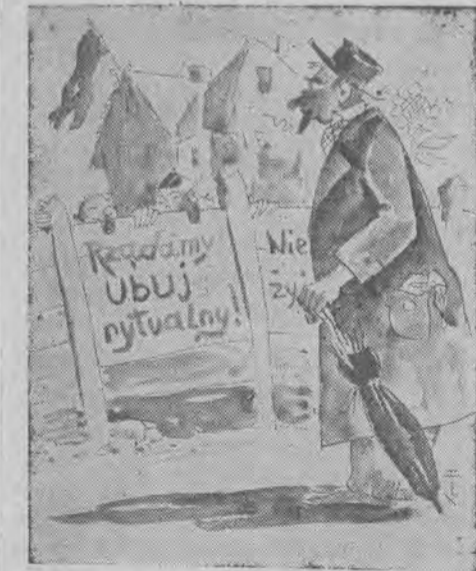 Rządamy
UBUJ
rytualny!
Nie
ży